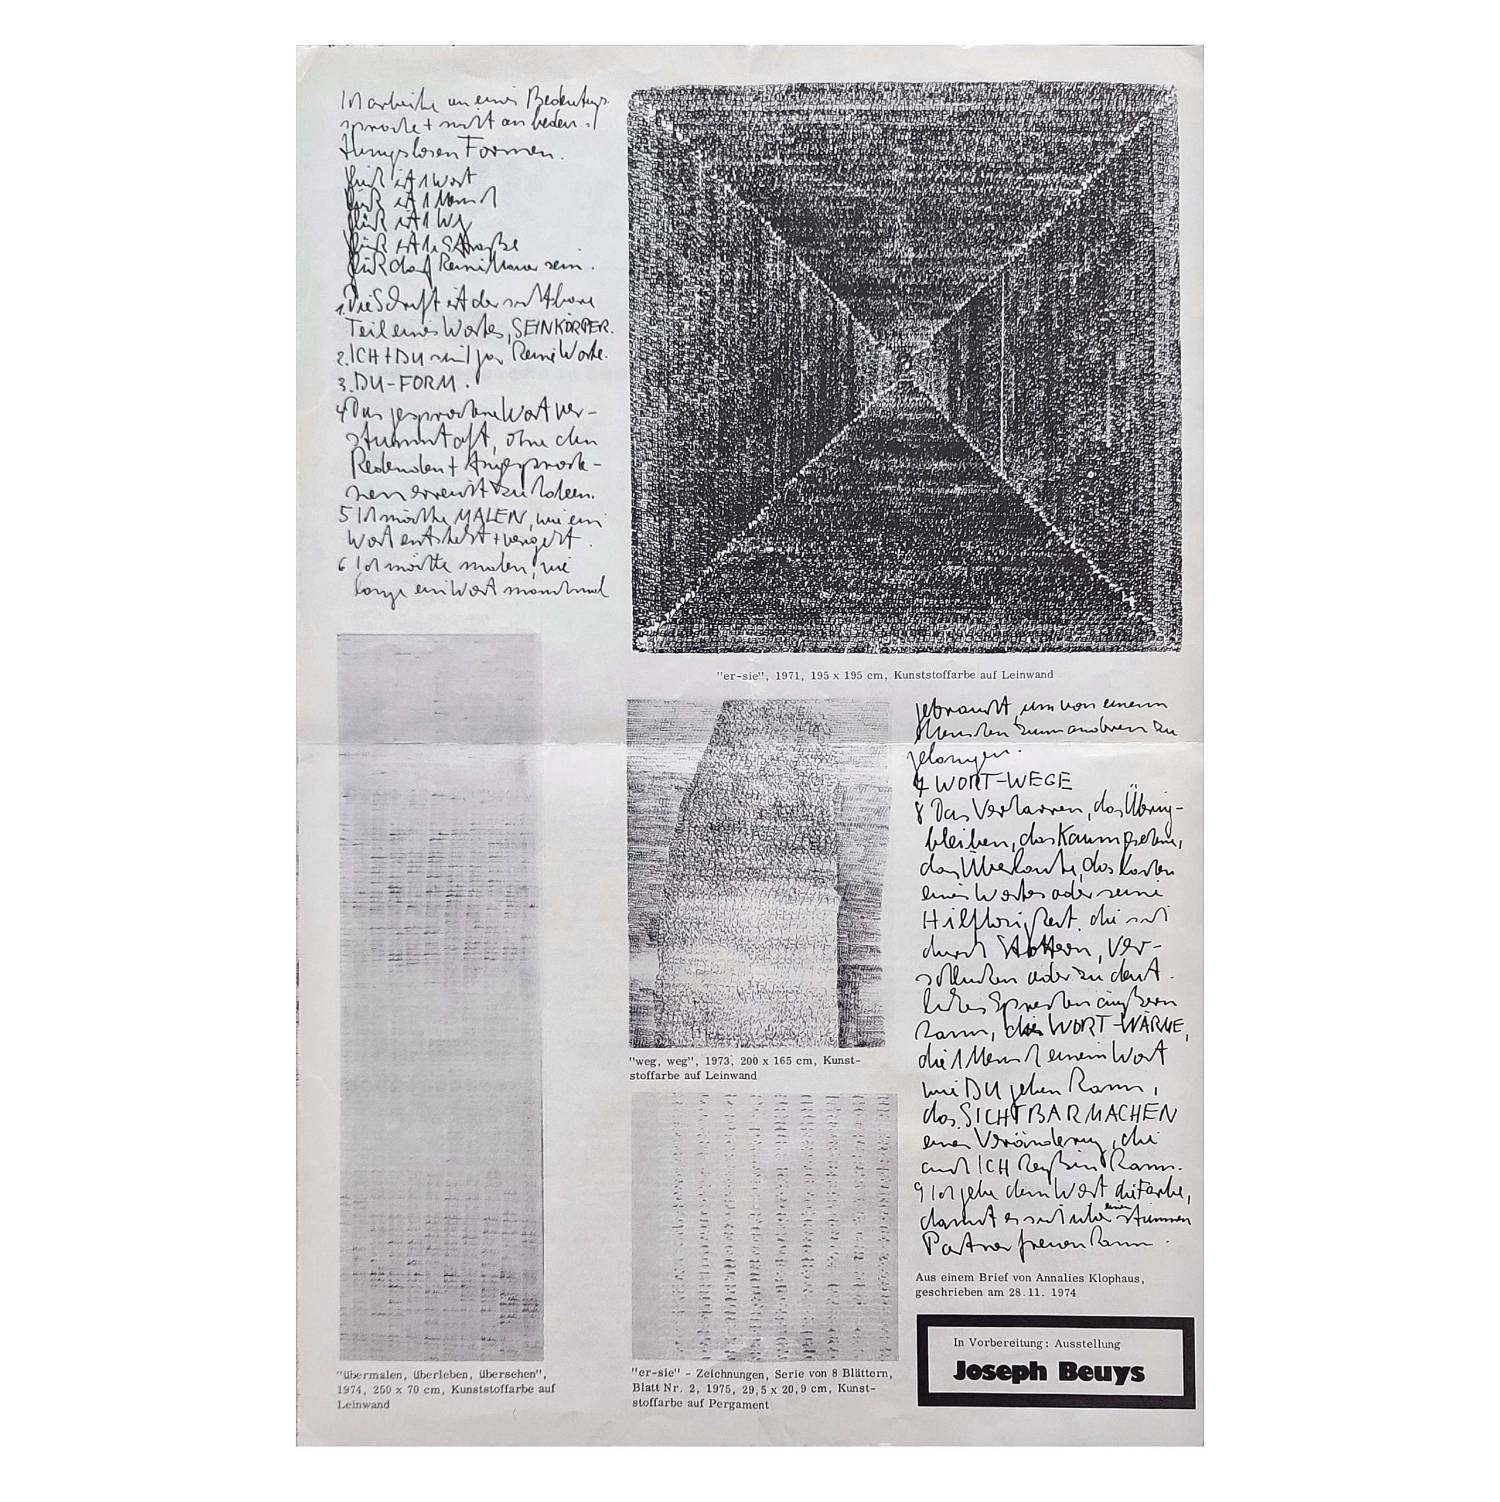 Ich arbeite an einer Bedeutungs
sprache + nicht an bedeu-
tungslosen Formen.
ist 1 Wort
ist 1 Mensch
ist 1 Weg
ist 1e Straße
darf keine Mauer sein.
1. Die Schrift ist der sichtbare
Teil eines Wortes, SEIN KÖRPER.
2. ICH + DU sind gar keine Worte.
3. DU-FORM.
4 Das gesprochene Wort ver-
stummt oft, ohne den
Redenden + Angesproche-
nen erreicht zu haben.
5 Ich möchte MALEN, wie ein
Wort entsteht + vergeht.
6 Ich möchte malen, wie
lange ein Wort manchmal
"er-sie", 1971, 195 x 195 cm, Kunststoffarbe auf Leinwand
gebraucht, um von einem
Menschen zum anderen zu
gelangen.
7 WORT-WEGE
8 Das Verharren, das Übrig-
bleiben, das Kaumgesehene,
das Überlaute, das
eines Wortes oder seine
Hilflosigkeit, die sich
durch Stottern, Ver-
schlucken oder zu deut-
liches Sprechen äußern
kann, die WORT-WÄRME,
die 1 Mensch einem Wort
wie DU geben kann,
das SICHTBARMACHEN
einer Veränderung, die
auch ICH heißen kann.
9 Ich gebe dem Wort die Farbe,
damit es sich über einen stummen
Partner freuen kann.
Aus einem Brief von Annalies Klophaus,
geschrieben am 28.11. 1974
"weg, weg", 1973, 200 x 165 cm, Kunst-
stoffarbe auf Leinwand
"übermalen, überleben, übersehen",
1974, 250 x 70 cm, Kunststoffarbe auf
Leinwand
"er-sie" - Zeichnungen, Serie von 8 Blättern,
Blatt Nr. 2, 1975, 29,5 x 20,9 cm, Kunst-
stoffarbe auf Pergament
In Vorbereitung: Ausstellung
Joseph Beuys